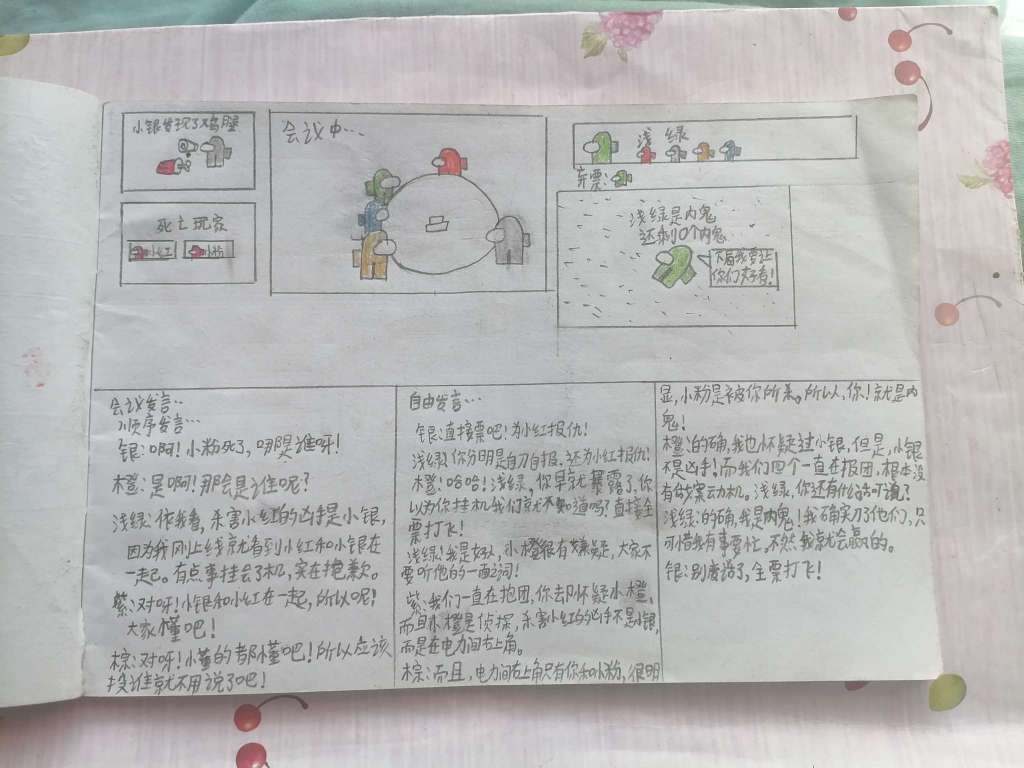 小银发现了鸡腿
死亡玩家
小红
小粉
会议中…
浅绿
弃票:
浅绿是内鬼
还剩0个内鬼
下局我要让
你们好看!
会议发言…
顺序发言…
银:啊!小粉死了,哪是谁呀!
橙:是啊!那会是谁呢?
浅绿:依我看,杀害小红的凶手是小银,
因为我刚上线就看到小红和小银在
一起。有点事挂会了机,实在抱歉。
紫:对呀!小银和小红在一起,所以呢!
大家懂吧!
棕:对呀!小懂的都懂吧!所以应该
投谁就不用说了吧!
自由发言…
银:直接票吧!为小红报仇!
浅绿:你分明是自刀自报,还为小红报仇!
橙:哈哈!浅绿,你早就暴露了,你
以为你挂机我们就不知道吗?直接全
票打飞!
浅绿:我是好人,小橙很有嫌疑,大家不
要听他的一面之词!
紫:我们一直在抱团,你去却怀疑小橙,
而且小橙是侦探,杀害小红的凶手不是小银,
而是在电力间右上角。
棕:而且,电力间右上角只有你和小粉,很明
显,小粉是被你所杀。所以,你!就是内
鬼!
橙:的确,我也怀疑过小银,但是,小银
不是凶手!而我们四个一直在报团,根本没
有做案动机。浅绿,你还有什么话可说?
浅绿:的确,我是内鬼!我确实刀了他们,只
可惜我有事要忙,不然我就会赢的。
银:别废话了,全票打飞!